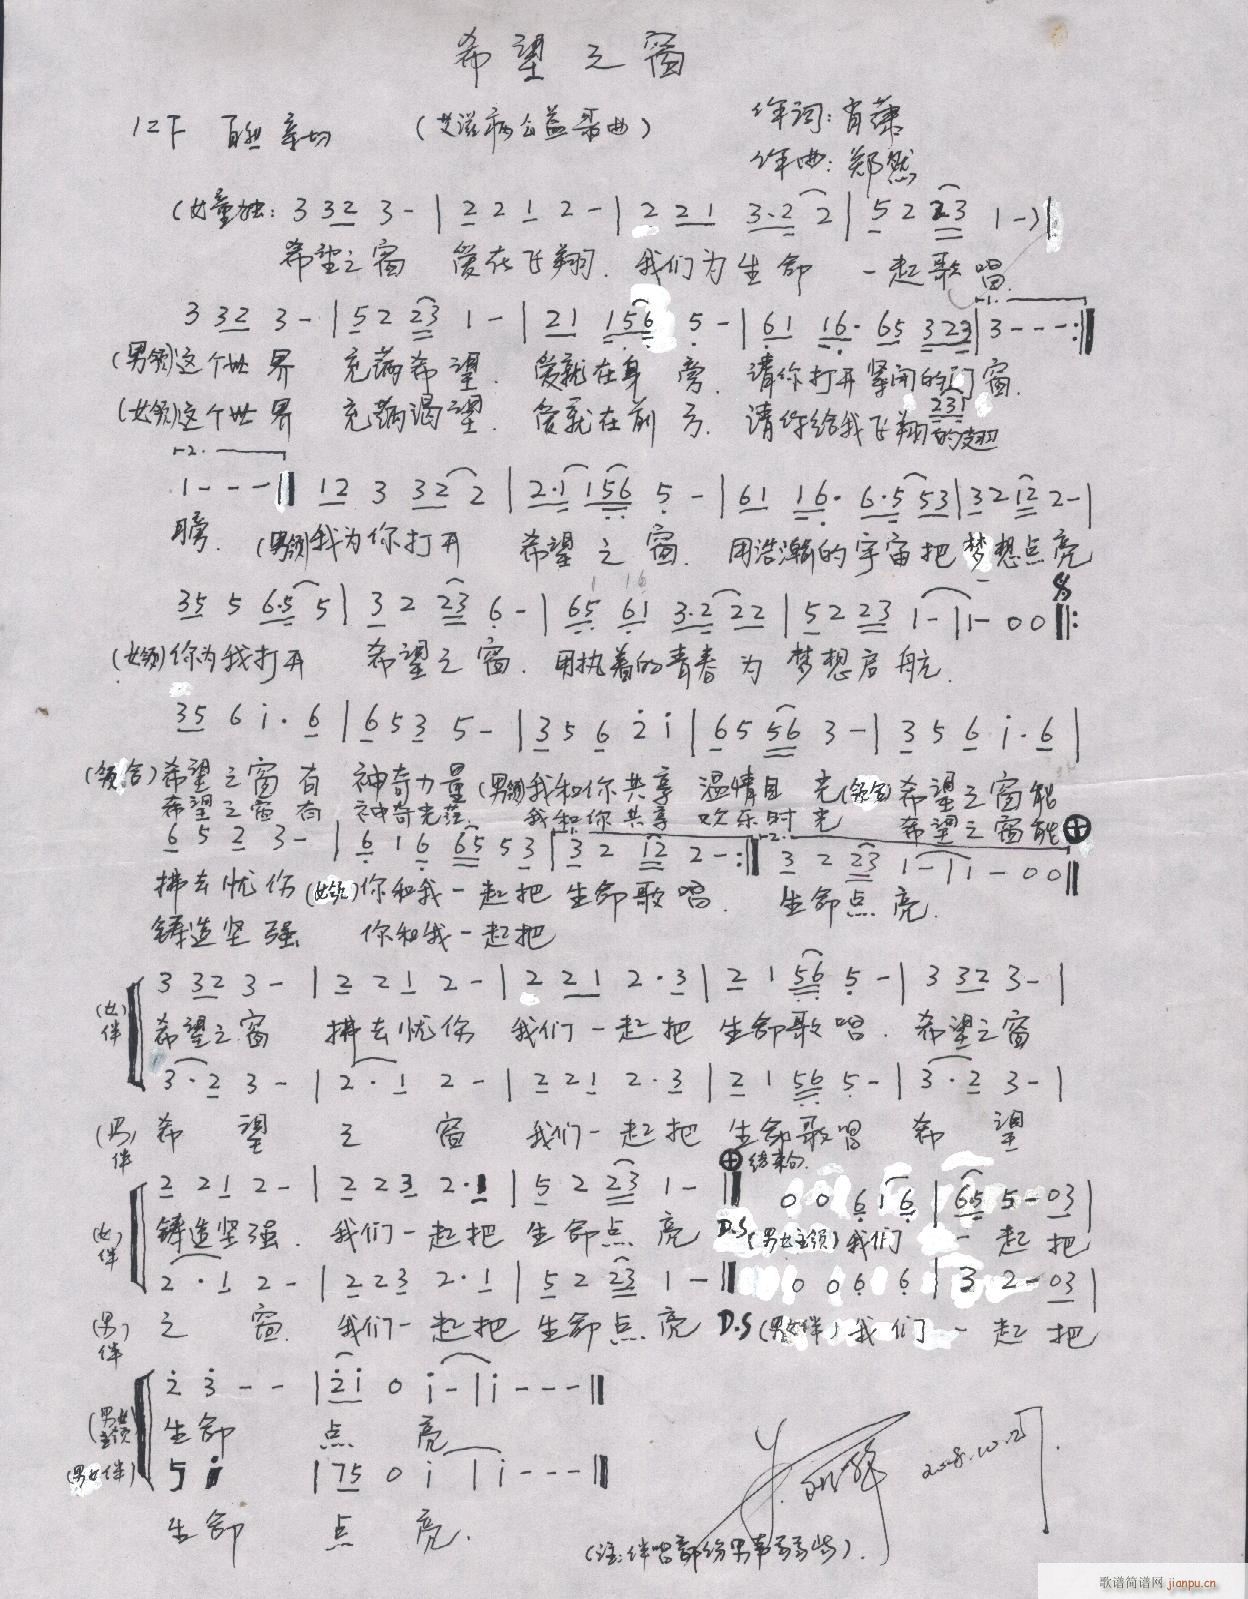 希望之窗
(艾滋病公益歌曲)
作词:肖萧
作曲:郑然
(女童独: 3 32 3 - | 2 2 1 2 - | 2 2 1 3·2 2 | 5 2 23 1 - )
希望之窗 爱在飞翔. 我们为生命 一起歌唱.
3 32 3 - | 5 2 23 1 - | 21 156 5 - | 61 16· 65 323 | 3 - - - :||
(男领)这个世界 充满希望. 爱就在身旁. 请你打开紧闭的门窗.
231
(女领)这个世界 充满渴望. 爱就在前方. 请你给我飞翔的翅
1 - - - || 12 3 32 2 | 2·1 156 5 - | 61 16· 6·5 53 | 3 2 12 2 - |
膀. (男领)我为你打开 希望之窗. 用浩瀚的宇宙把梦想点亮
35 5 6·5 5 | 3 2 23 6 - | 65 61 3·2 22 | 5 2 23 1 - | 1 - 0 0 ||:
(女领)你为我打开 希望之窗. 用执着的青春为梦想启航.
35 6 i· 6 | 6 5 3 5 - | 3 5 6 2 i | 6 5 56 3 - | 3 5 6 i· 6 |
(领合)希望之窗有 神奇力量 (男领)我和你共享 温情目光 (领合)希望之窗能
希望之窗有 神奇光茫. 我和你共享 欢乐时光 希望之窗能
6 5 2 3 - | 6 1 6 65 5 3 | 3 2 12 2 - :|| 3 2 23 1 - | 1 - 0 0 ||
拂去忧伤 (女领)你和我一起把 生命歌唱. 生命点亮.
铸造坚强 你和我一起把
3 32 3 - | 2 2 1 2 - | 2 2 1 2· 3 | 2 1 56 5 - | 3 32 3 - |
(女)伴 希望之窗 拂去忧伤 我们一起把 生命歌唱. 希望之窗
3·2 3 - | 2·1 2 - | 2 2 1 2· 3 | 2 1 56 5 - | 3·2 3 - |
(男)伴 希 望 之 窗 我们一起把 生命歌唱 希 望
结束句.
2 2 1 2 - | 2 2 3 2·1 | 5 2 23 1 - || 0 0 6 16 | 65 5 - 03 |
(女)伴 铸造坚强. 我们一起把 生命点亮 D.S (男女主领)我们 一起把
2·1 2 - | 2 2 3 2·1 | 5 2 23 1 - || 0 0 6 6 | 3 2 - 03 |
(男)伴 之 窗. 我们一起把 生命点亮 D.S (男女伴)我们 一起把
2 3 - - | 2i 0 i - | i - - - ||
(男女主领) 生命 点 亮
5 i | 75 0 i | i - - - ||
(男女伴) 生命 点 亮.
(注:伴唱部份男声弱些).
歌谱简谱网 jianpu.cn